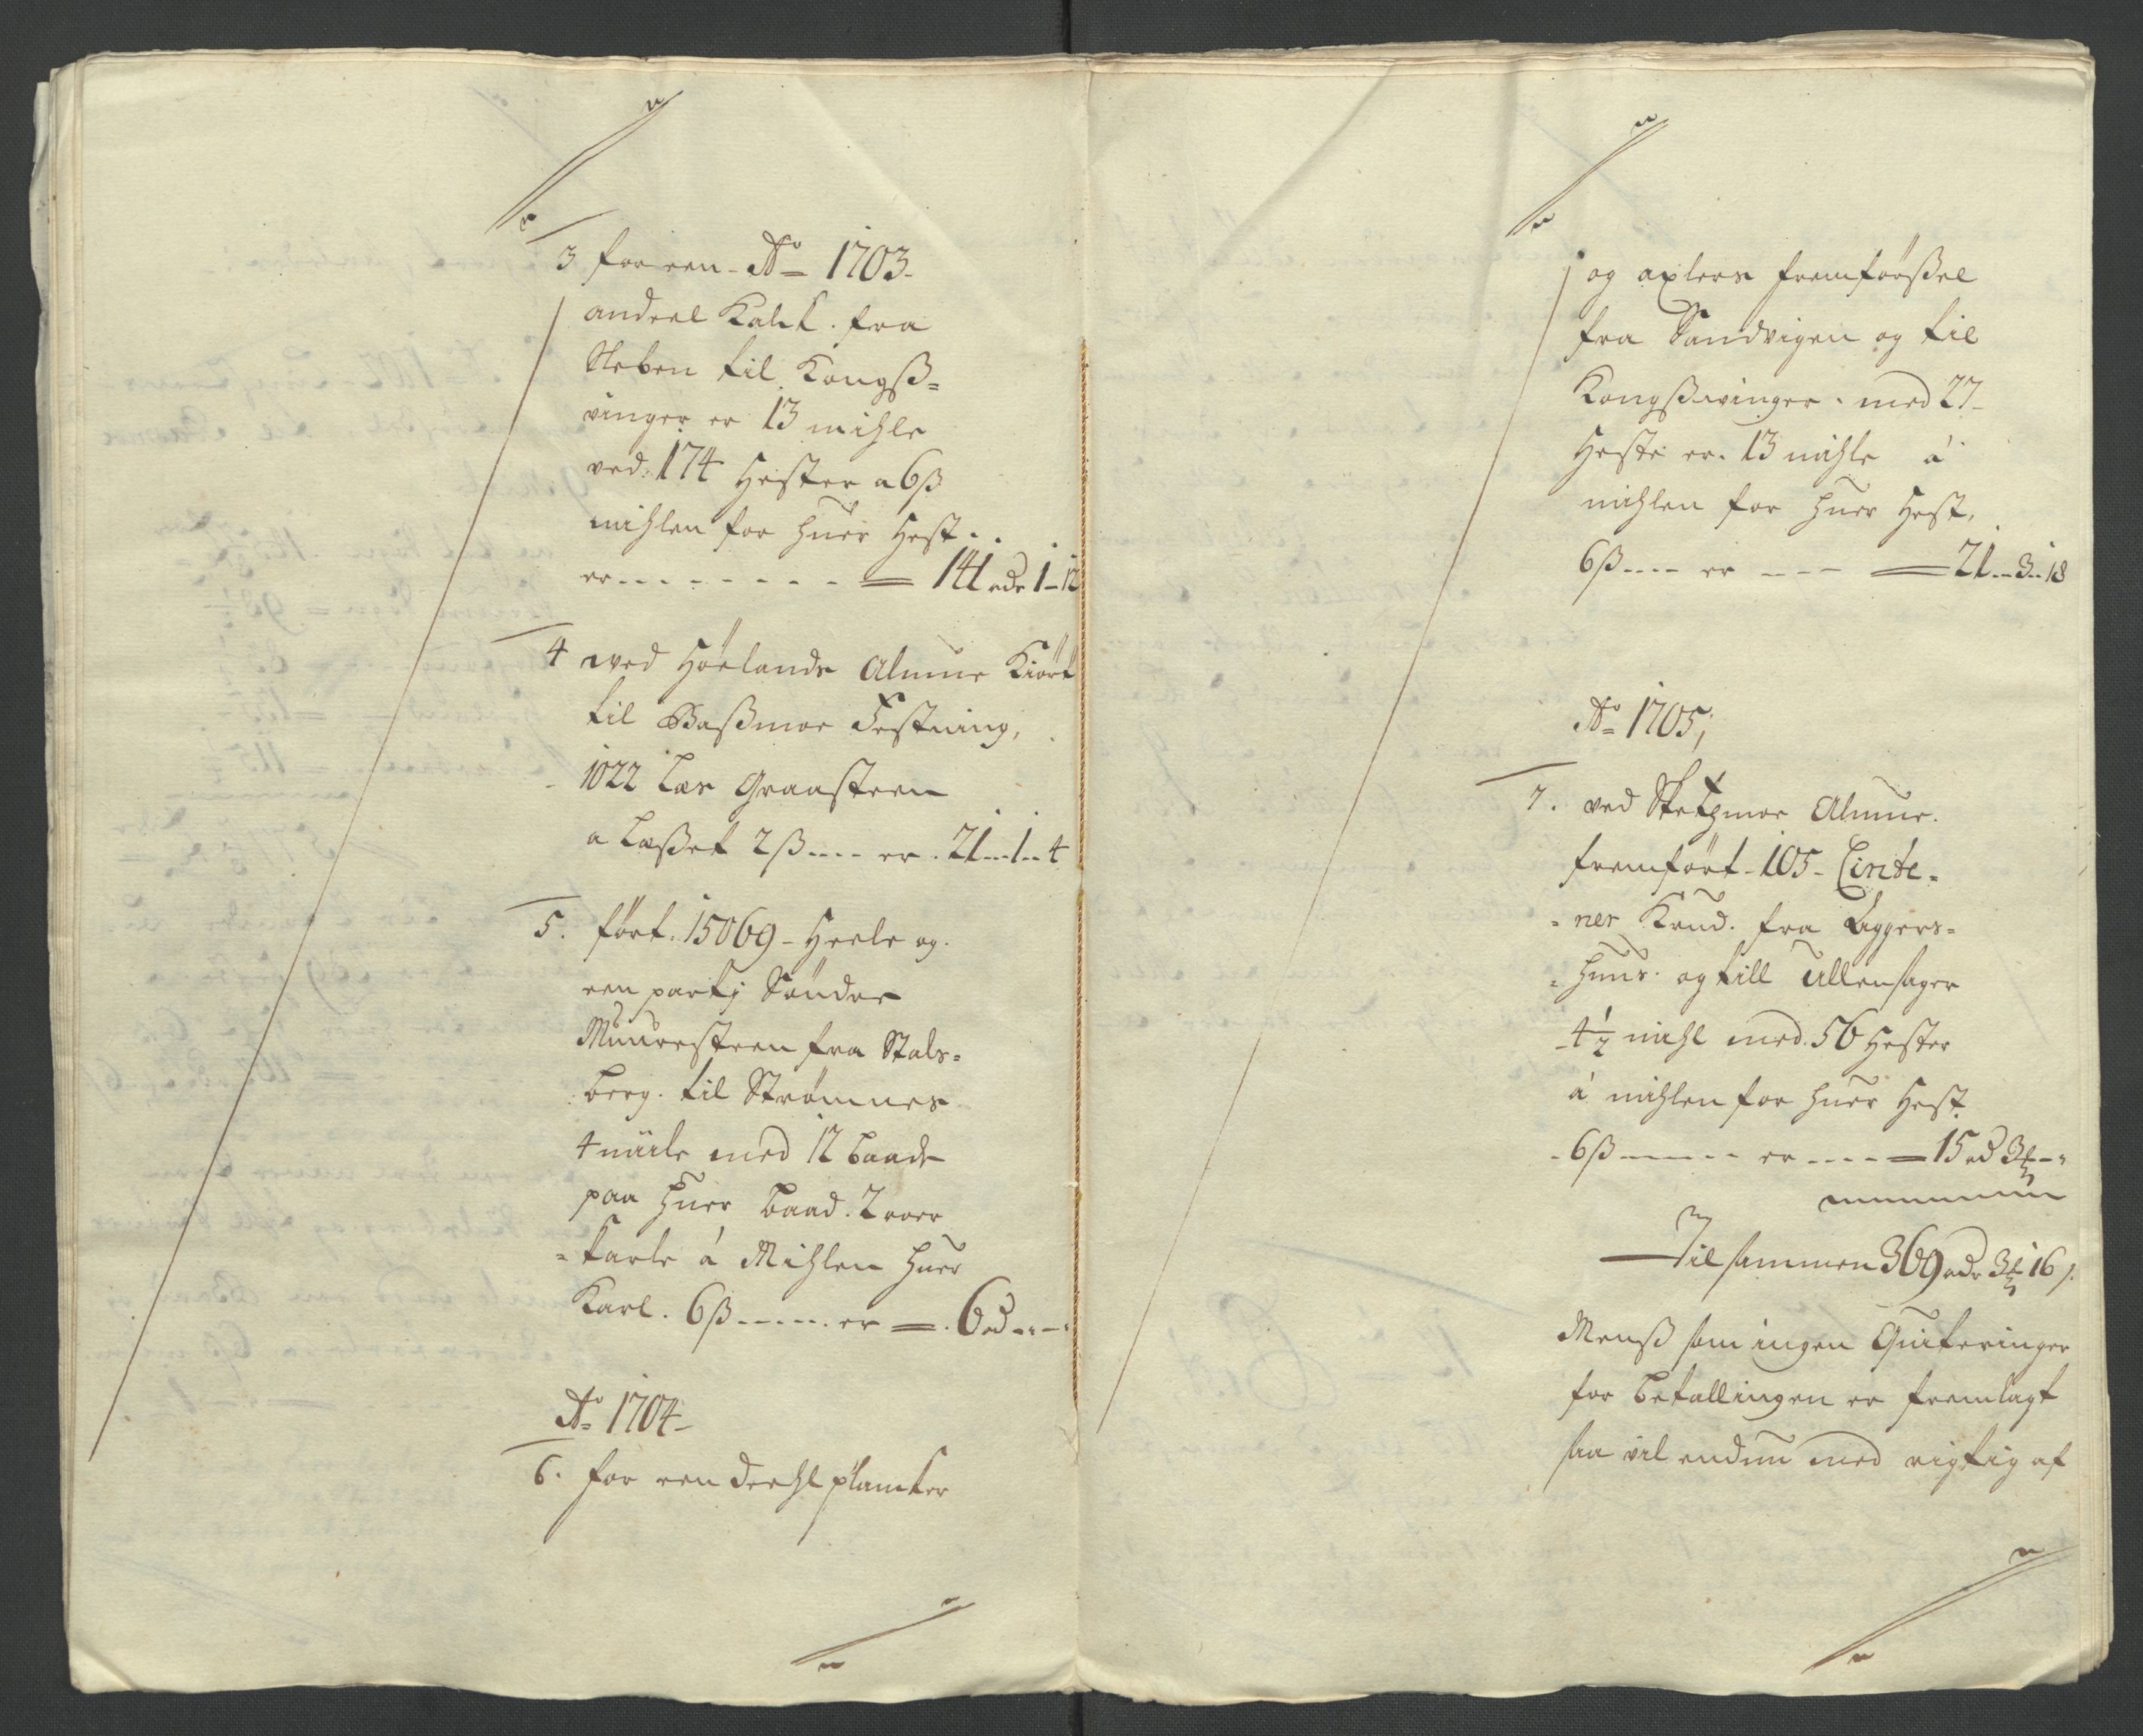 3 for een Ao 1703
andeel Kalck. fra
Neben til Kongß=
vinger er 13 mihle
ved 174 Hester a 6 ß
mihlen for huer Hest..
er - - - - - - - = 141 rdr 1 - 12
4 med Hörlands Almue Kiört
til Baßmoe Festning,
1022 Læs Graasteen
a Læßet 2 ß ---- er . 21..1..4
5. fört. 15069 - Heele og.
een partj Sönder
Muursteen fra Stals=
berg. til Strömnes
4 miile med 12 baade
paa huer baad. 2 roer
=karle á Mihlen huer
Karl. 6 ß ----- er = . 6 rd - - -
Ao 1704
6. for een deehl plancker
og axlers fremförßel
fra Sandvigen og til
Kongßwinger. med 27
Heste er. 13 mihle á
mihlen for huer Hest,
6 ß ---- er --- = 21..3..18
Ao 1705;
7. ved Almue.
fremfört - 105 - Cinte=
=ner Krud. fra Aggers=
=huus. og till Ullensager
4 1/2 mihl med. 56 Hester
á mihlen for huer Hest
6 ß ----- er ---- = 15 rd 3 ---
Tilsammen 369 rdr 3 16 ß
Menß som ingen Quiteringer
for betallingen er fremlagt
saa vil endnu med rigtig af